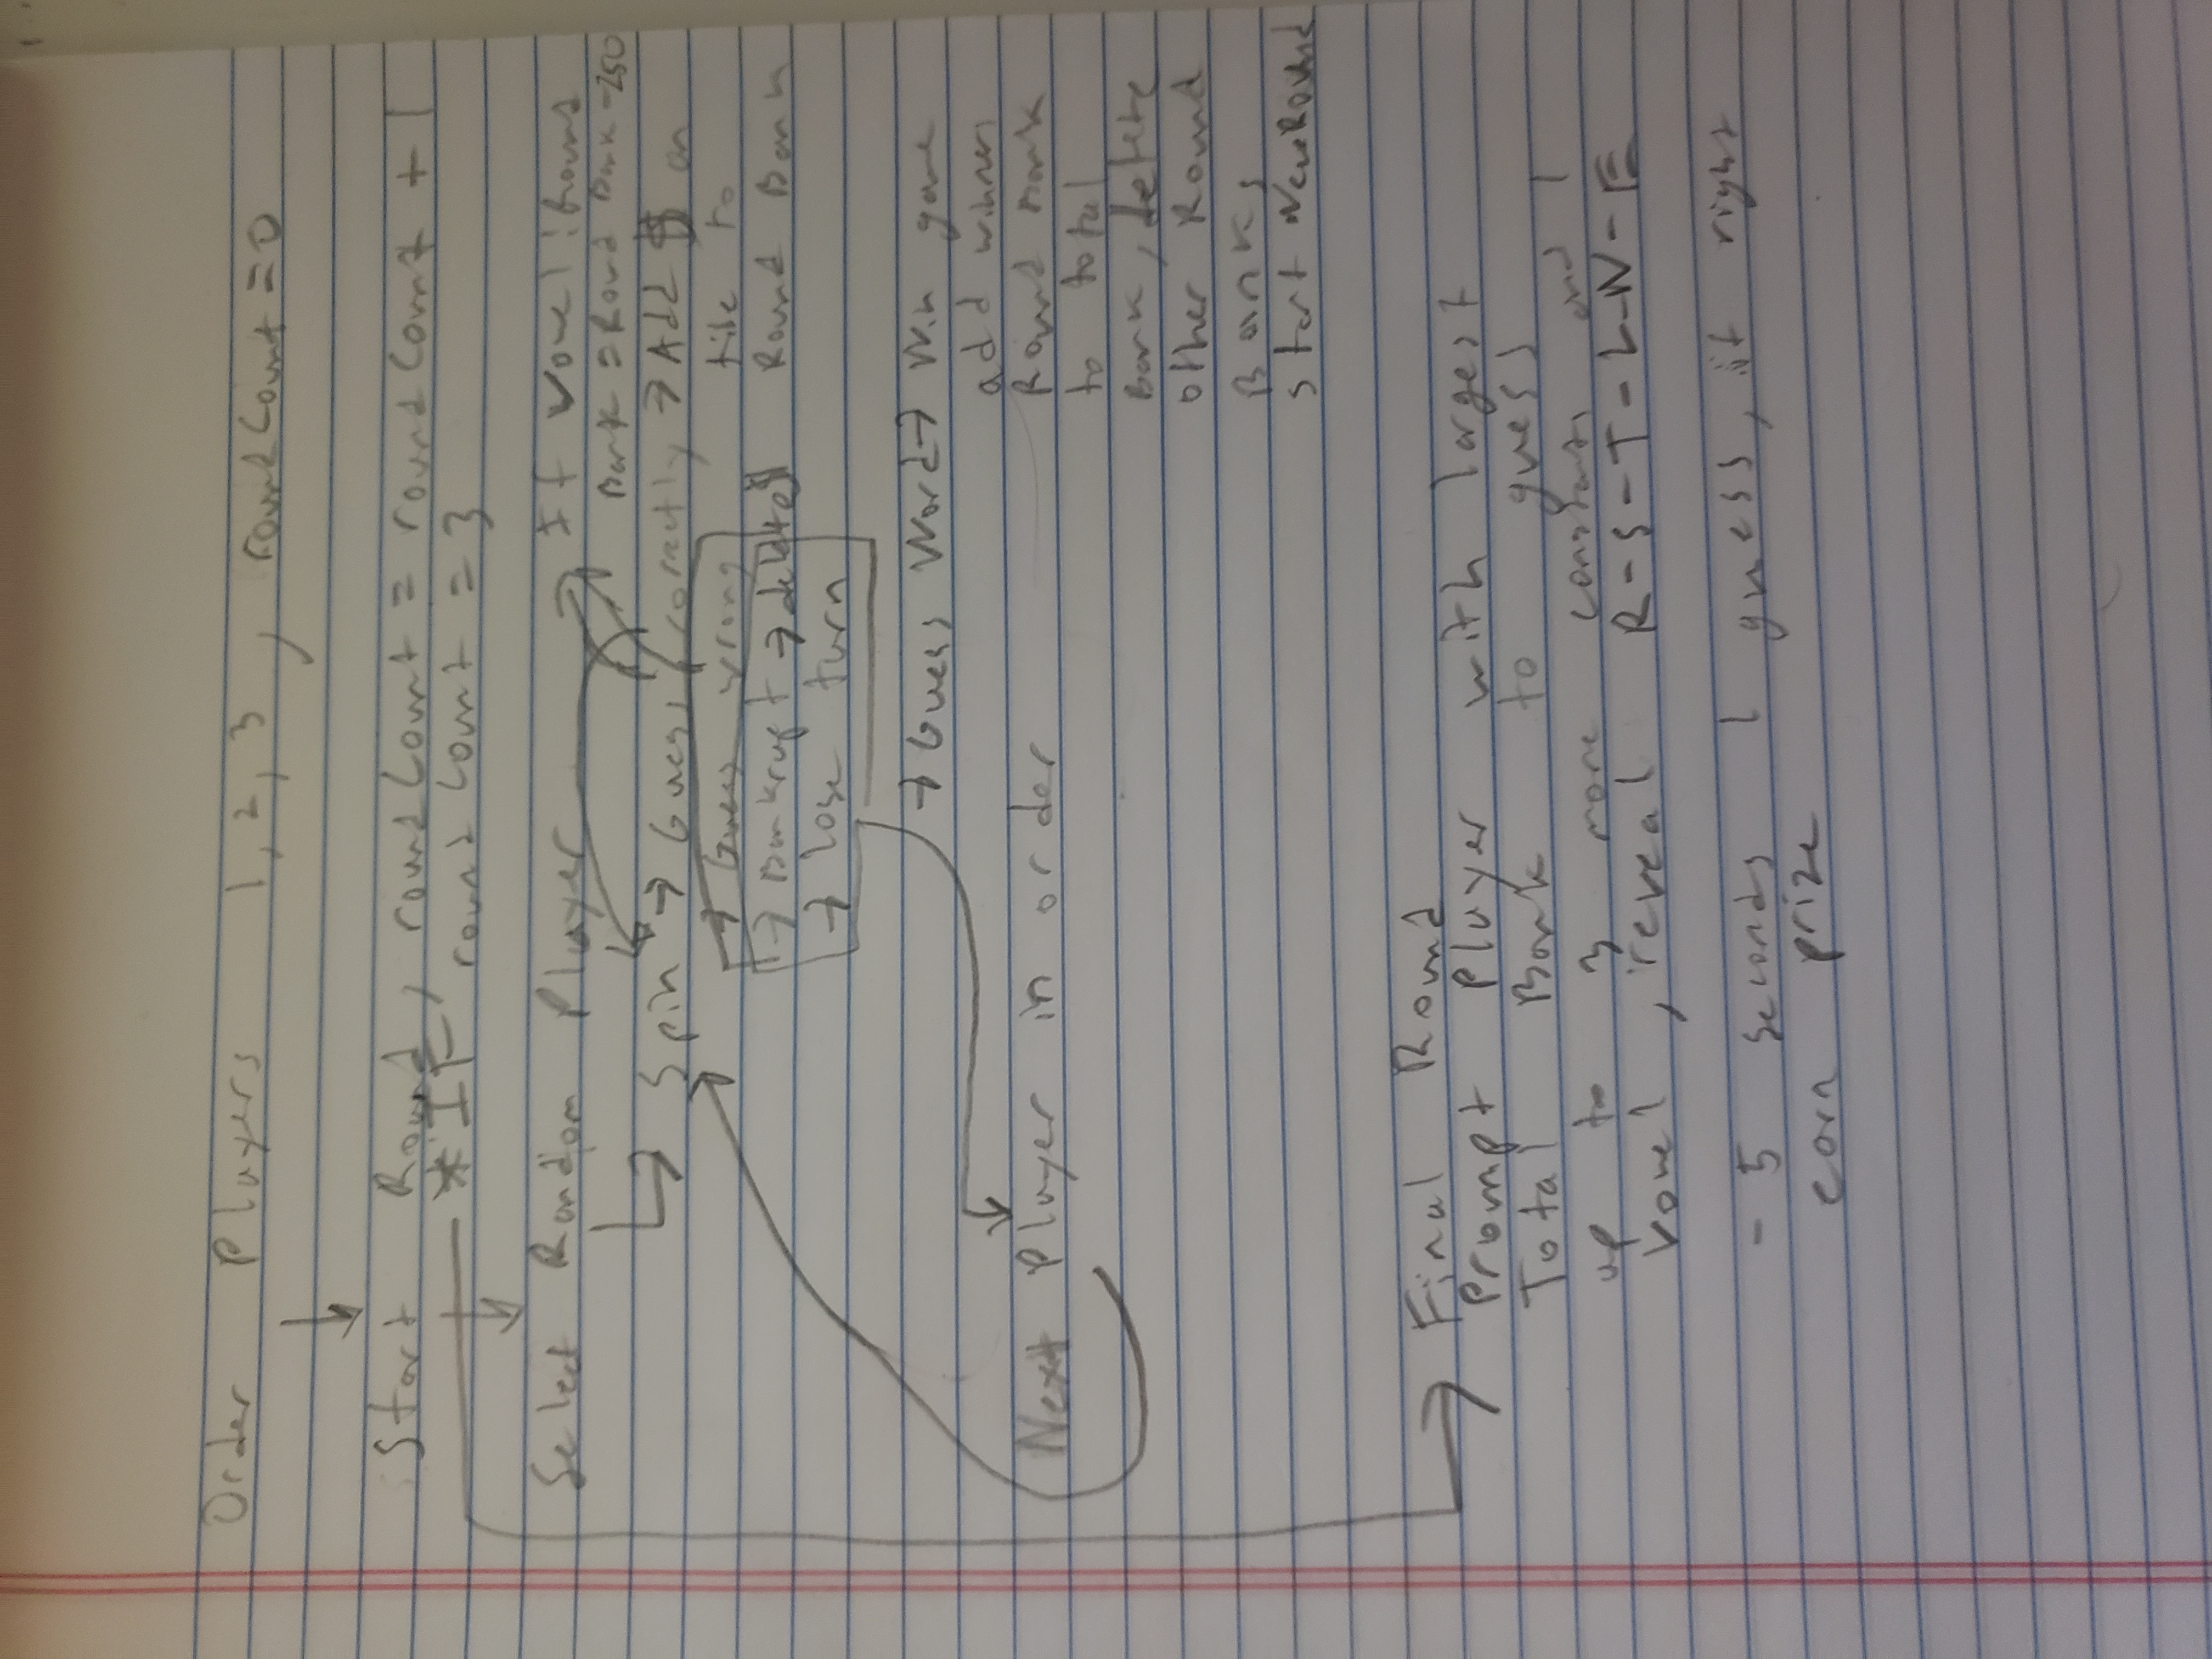 Order Players 1, 2, 3, roundCount = 0
Start Round, roundCount = roundCount + 1
* IF roundCount = 3
Select Random Player
If vowel: Round
Bank = Round Bank - 250
Spin → Guess correctly → Add $ on
tile to
Round Bank
→ Guess wrong
→ Bankrupt → delete $
→ lose turn
→ Guess Word → Win game
add winners
Round Bank
to total
Bank, delete
other Round
Banks
start NewRound
Next Player in order
Final Round
Prompt Player with largest
Total Bank to guess
up to 3 more and 1
vowel, reveal R-S-T-L-N-E
- 5 seconds 1 guess, if right
earn prize